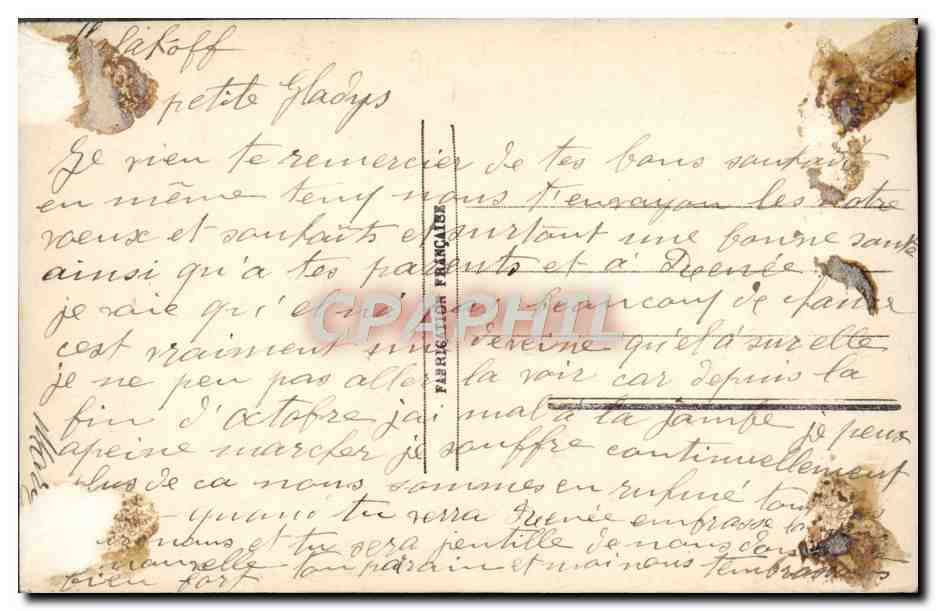 petite Gladys
Je vien te remercier de tes bons souhait
en même temp nous t'envoyon les notre
voeux et souhaits et surtout une bonne santé
ainsi qu'a tes parents et à Renée.
je vaie qu'el n'é pas beaucoup de chance
c'est vraiment une déveine qu'el à sur elle
je ne peu pas aller la voir car depuis la
fin d'octobre jai mal à la jambe je peux
apeine marcher je souffre continuellement
plus de ca nous sommes en rumé tous
quand tu verra Renée embrasse la
nous et tu sera jentille de nous
nouvelle ton parain et moi nous tembrassons
bien fort
FABRICATION FRANÇAISE
CPAPHIL